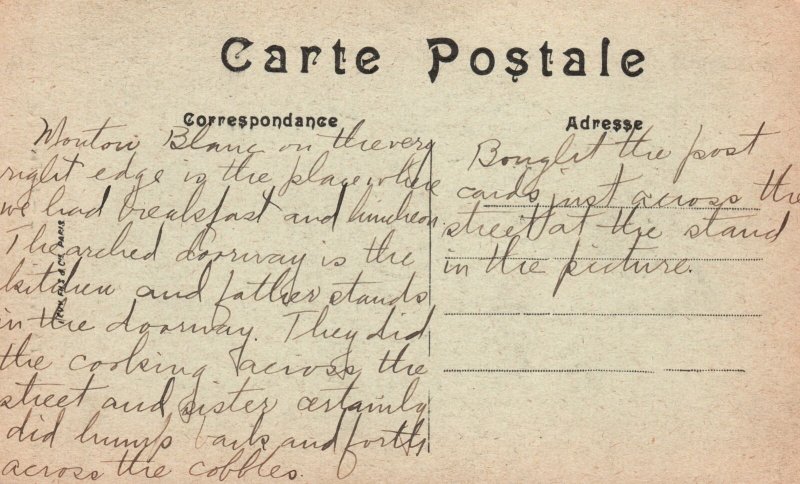 Carte Postale
Correspondance
Adresse
Mouton Blanc on the very
right edge is the place where
we had breakfast and luncheon
The arched doorway is the
kitchen and father stands
in the doorway. They did
the cooking across the
street and sister certainly
did hump back and forth
across the cobbles.
Bought the post
cards just across the
street at the stand
in the picture.
FILS & Cie PARIS